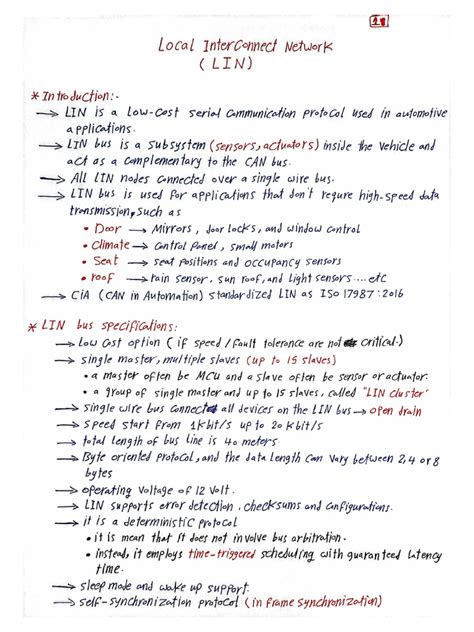 18
Local Interconnect Network
(LIN)
* Introduction:-
→ LIN is a low-cost serial communication protocol used in automotive
applications.
→ LIN bus is a subsystem (sensors, actuators) inside the vehicle and
act as a complementary to the CAN bus.
→ All LIN nodes connected over a single wire bus.
→ LIN bus is used for applications that don't requre high-speed data
transmission, such as
• Door → Mirrors, door locks, and window control
• Climate → control Panel, small motors
• Seat → seat positions and occupancy sensors
• roof → rain sensor, sun roof, and light sensors.... etc
→ CiA (CAN in Automation) standardized LIN as ISO 17987:2016
* LIN bus specifications:
→ low cost option (if speed / fault tolerance are not critical.)
→ single master, multiple slaves (up to 15 slaves)
• a master often be MCU and a slave often be sensor or actuator.
• a group of single master and up to 15 slaves, called "LIN cluster"
→ single wire bus connect all devices on the LIN bus → open drain
→ speed start from 1kbit/s up to 20kbit/s
→ total length of bus line is 40 meters
→ Byte oriented protocol, and the data length can vary between 2, 4 or 8
bytes
→ operating voltage of 12 Volt.
→ LIN supports error detection, checksums and configurations.
→ it is a deterministic protocol
• it is mean that it does not involve bus arbitration.
• instead, it employs time-triggered scheduling with guaranteed latency
time.
→ sleep mode and wake up support.
→ self-synchronization protocol (in frame synchronization)